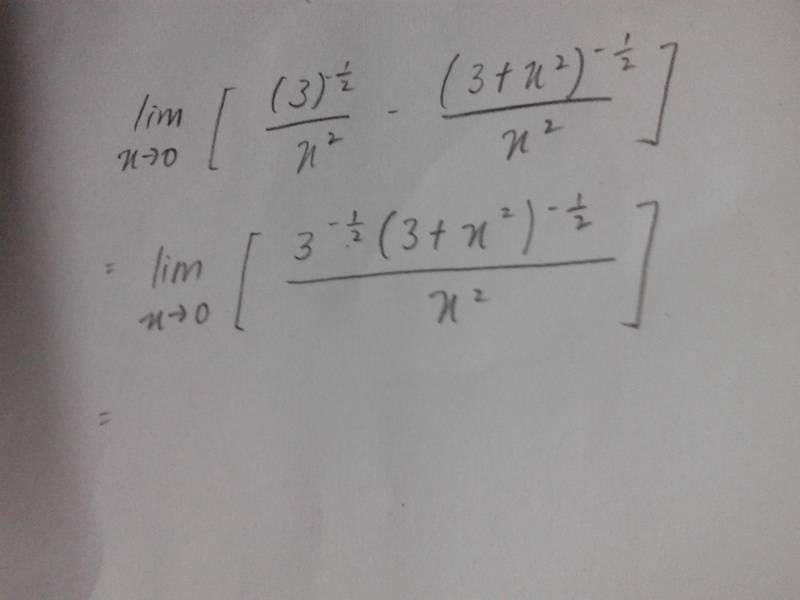 lim x→0 [ (3)^{-1/2} / x² - (3+x²)^{-1/2} / x² ]
= lim x→0 [ 3^{-1/2} (3+x²)^{-1/2} / x² ]
=